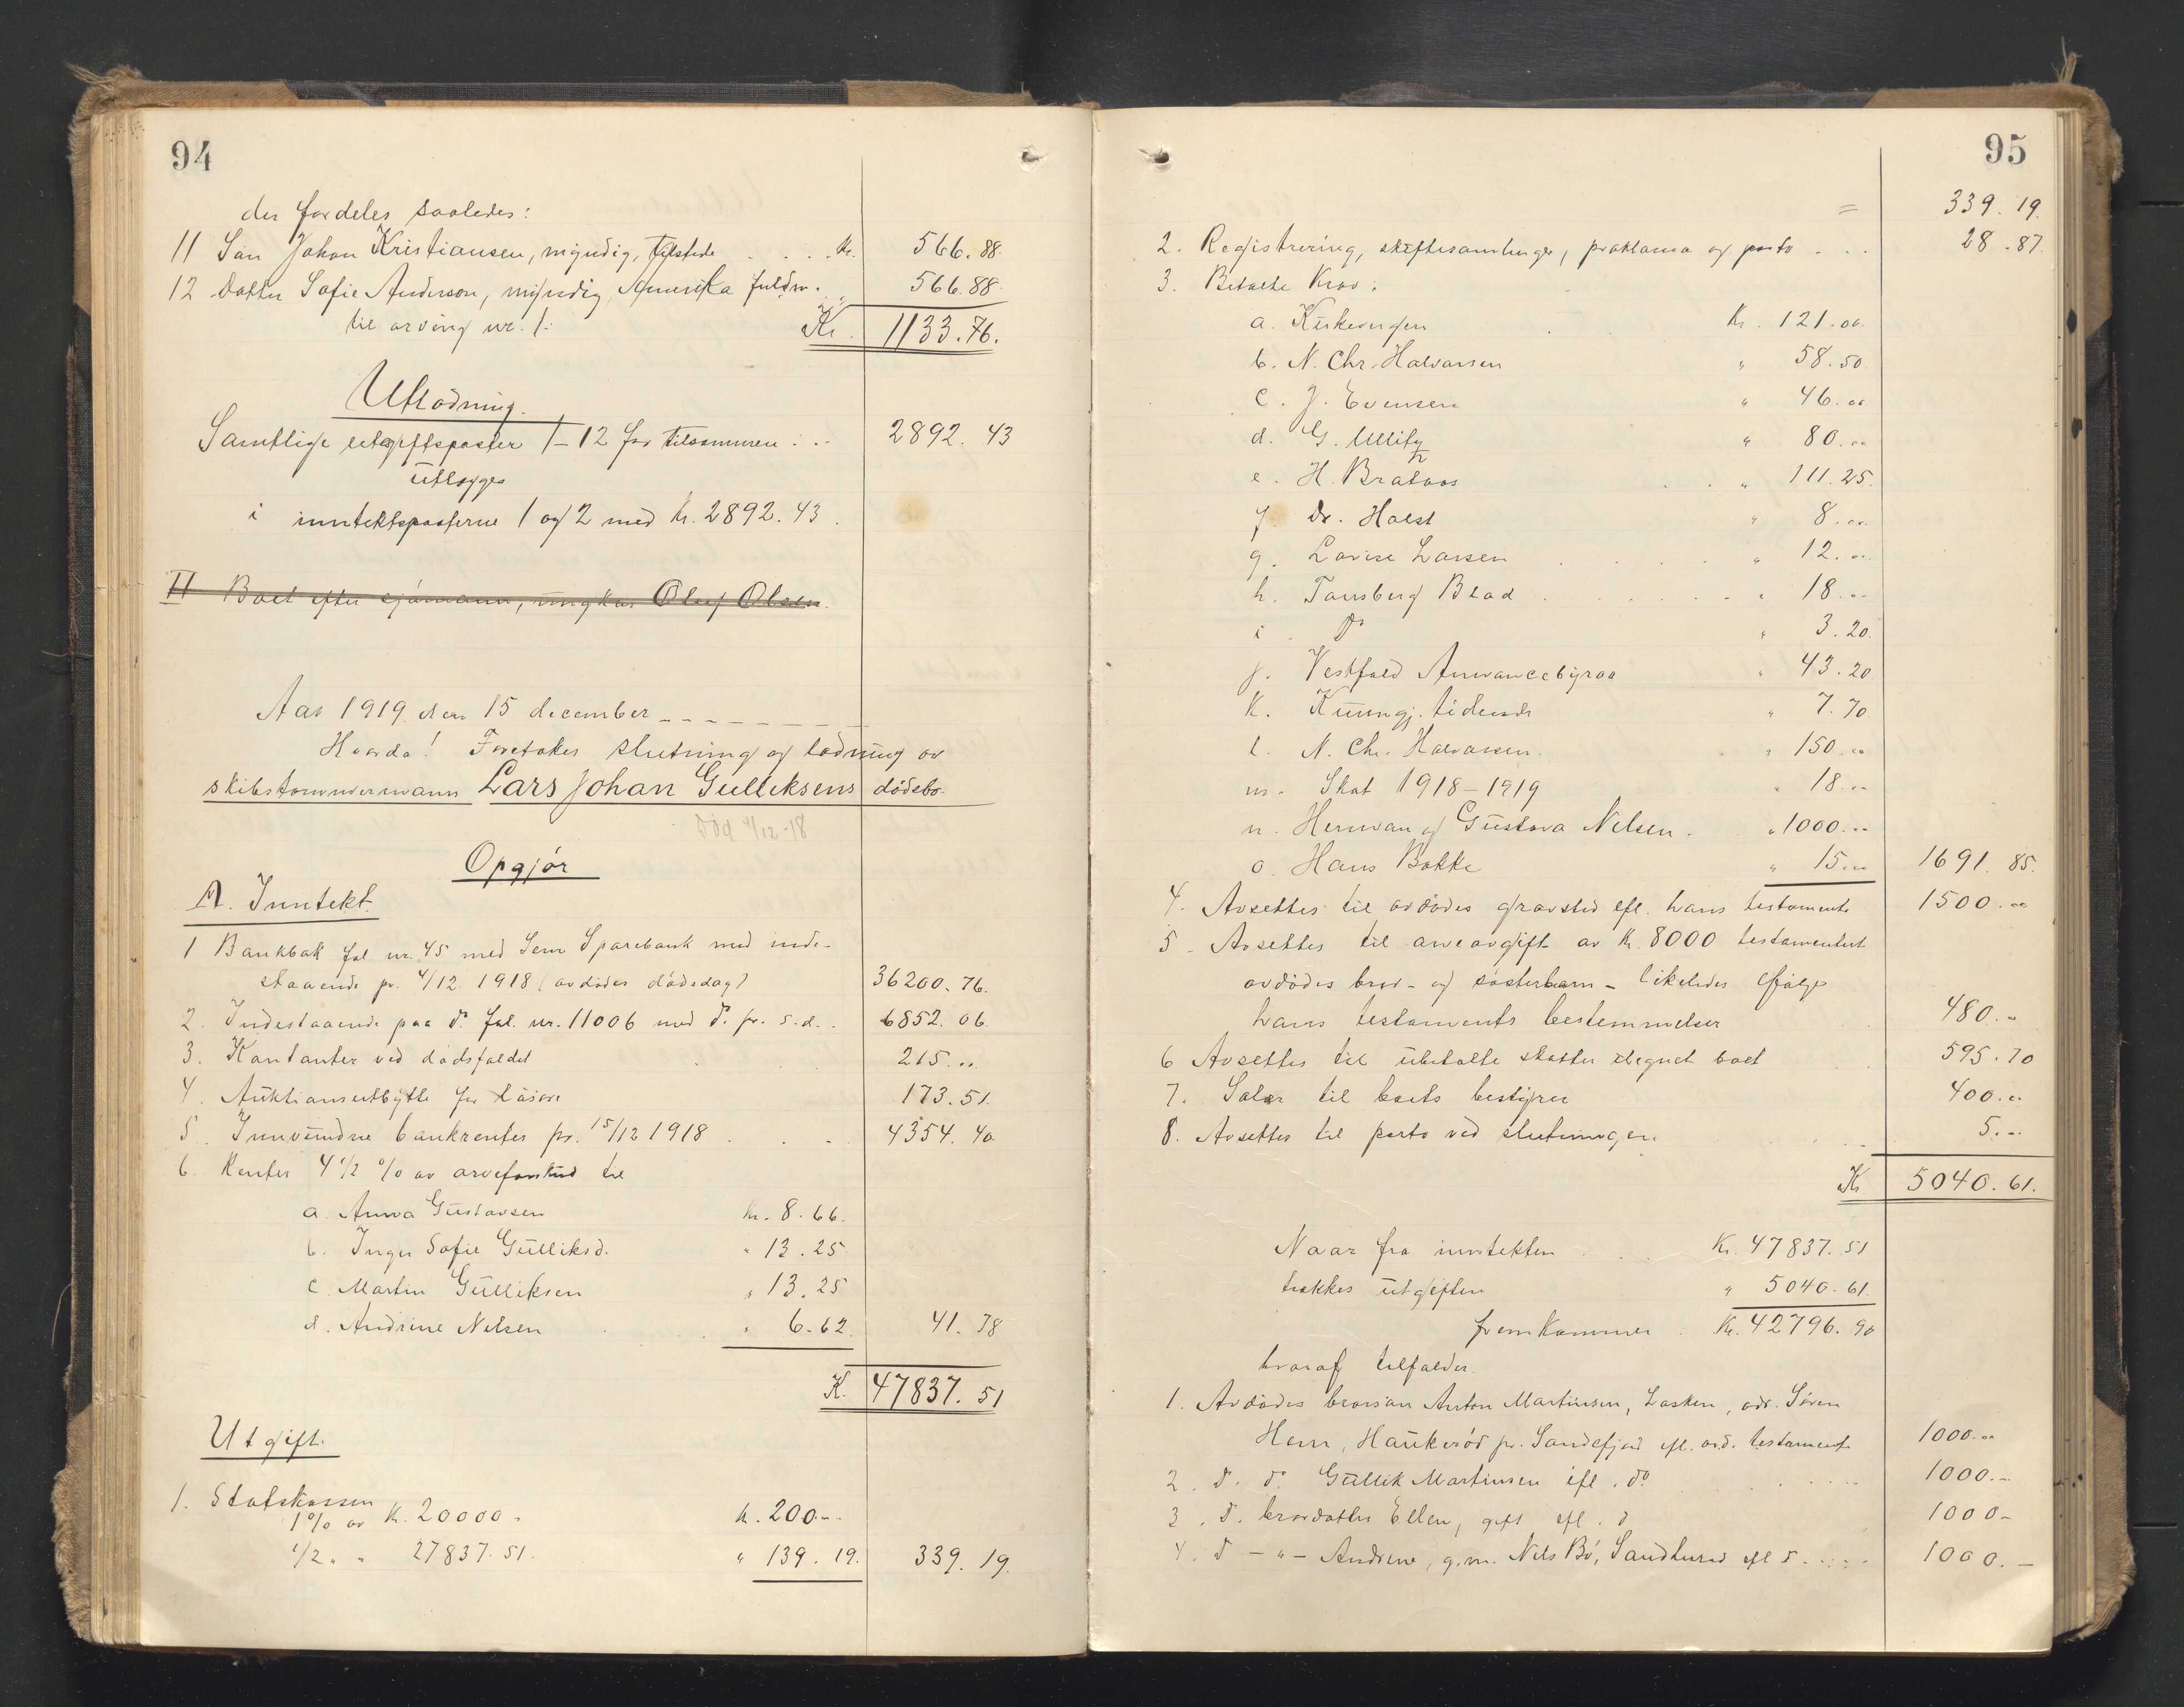 94
der fordeles saaledes:
11 Søn Johan Kristiansen, myndig, tilstede . . . . Kr. 566.88.
12 Datter Sofie Anderson, myndig Amerika fuldm. " 566.88
til arving nr. 1. Kr. 1133.76.
Utlodning.
Samtlige utgiftsposter 1-12 for tilsammen . .. 2892.43
utlægges
i inntektsposterne 1 og 2 med kr. 2892.43.
II Boet efter sjømann, ungkar Oluf Olsen.
Aar 1919 den 15 december _ _ _ _ _ _ _ _
Hvorda! Foretokes slutning og lodning av
skibstømmermann Lars Johan Gulliksens dødsbo.
Død 4/12-18
Opgjør
A. Inntekt.
1 Bankbok fol nr. 45 med Sem Sparebank med inde-
staaende pr. 4/12 1918 (avdødes dødsdag) 36200.76.
2. Indestaaende paa do. fol. nr. 11006 med do. pr. s.d. . 6852.06.
3. Kontanter ved dødsfaldet 215...
4. Auktionsutbytte for løsøre 173.51.
5. Innvundne bankrenter pr. 15/12 1918 . . . 4354.40.
6. Renter 4 1/2 % av arveforskud til
a. Anna Gustavsen kr. 8.66.
b. Inger Sofie Gulliksd. " 13.25
c. Martin Gulliksen " 13.25
d. Andrine Nilsen . . . " 6.62. 41.78
K. 47837.51
Utgift.
1. Statskassen
1% av kr. 20000.- k. 200.--
1/2 " " 27837.51. " 139.19. 339.19.
95
= 339.19.
2. Registrering, skiftesamlinger, proklama og porto . . . 28.87.
3. Betalte krav:
a. Kirkevergen Kr. 121.00.
b. N. Chr. Halvorsen " 58.50.
c. J. Evensen " 46.00
d. G. Ullitz " 80.00
e. H. Brataas . . " 111.25.
f. Dr. Holst " 8.00.
g. Lovise Larsen . . . . " 12.00.
h. Tønsberg Blad . . . . . . " 18.00
i. Do " 3.20.
j. Vestfold Annoncebyraa " 43.20
k. Kunngj. tidende " 7.70.
l. N. Chr. Halvorsen. " 150.00
m. Skat 1918-1919 " 18.00
n. Herman og Gustava Nilsen. " 1000.00
o. Hans Bakke " 15.00 1691.85.
4. Avsettes til avdødes gravsted efl. hans testamente 1500.00
5. Avsettes til arveavgift av kr. 8000 testamentert
avdødes bror- og søsterbarn - likeledes efølge
hans testaments bestemmelser 480.-
6 Avsettes til ubetalte skatter ilignet boet 595.70
7. Salær til boets bestyrer 400.00
8. Avsettes til porto ved slutningen. . . . 5.--
Kr 5040.61.
Naar fra inntekten . . . Kr. 47837.51
trækkes utgiften " 5040.61.
fremkommer . Kr. 42796.90
hvorav tilfalder.
1. Avdødes brorsøn Anton Martinsen, Lasken, adr. Søren
Hem, Haukerød pr. Sandefjord efl. avd. testament 1000.00
2. Do. do. Gullik Martinsen efl. do . . . . 1000.--
3. D. brordatter Ellen, gift efl. d 1000-
4. D - " - Andrine, g.m. Nils Bø, Sandherad efl d. . . . . 1000.-